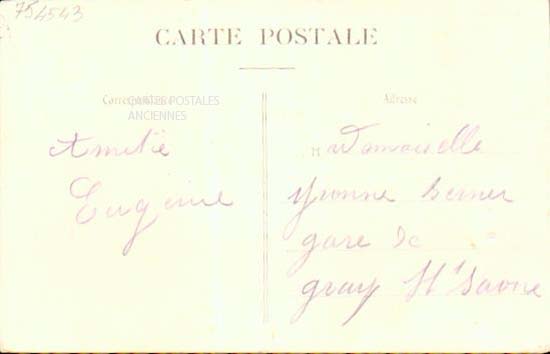 754543
CARTE POSTALE
Correspondance
CARTES POSTALES
ANCIENNES
Adresse
Amitié
Eugénie
Mademoiselle
Yvonne
gare de
gray Hte Saone